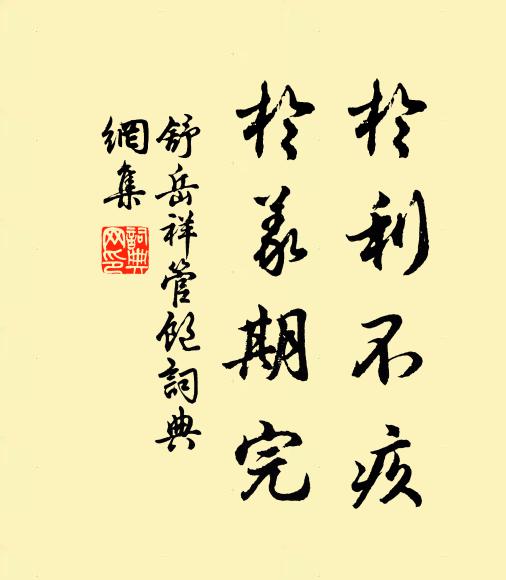 於利不疚
於義期完
舒岳祥管飽詞典
網集
詞典
网印